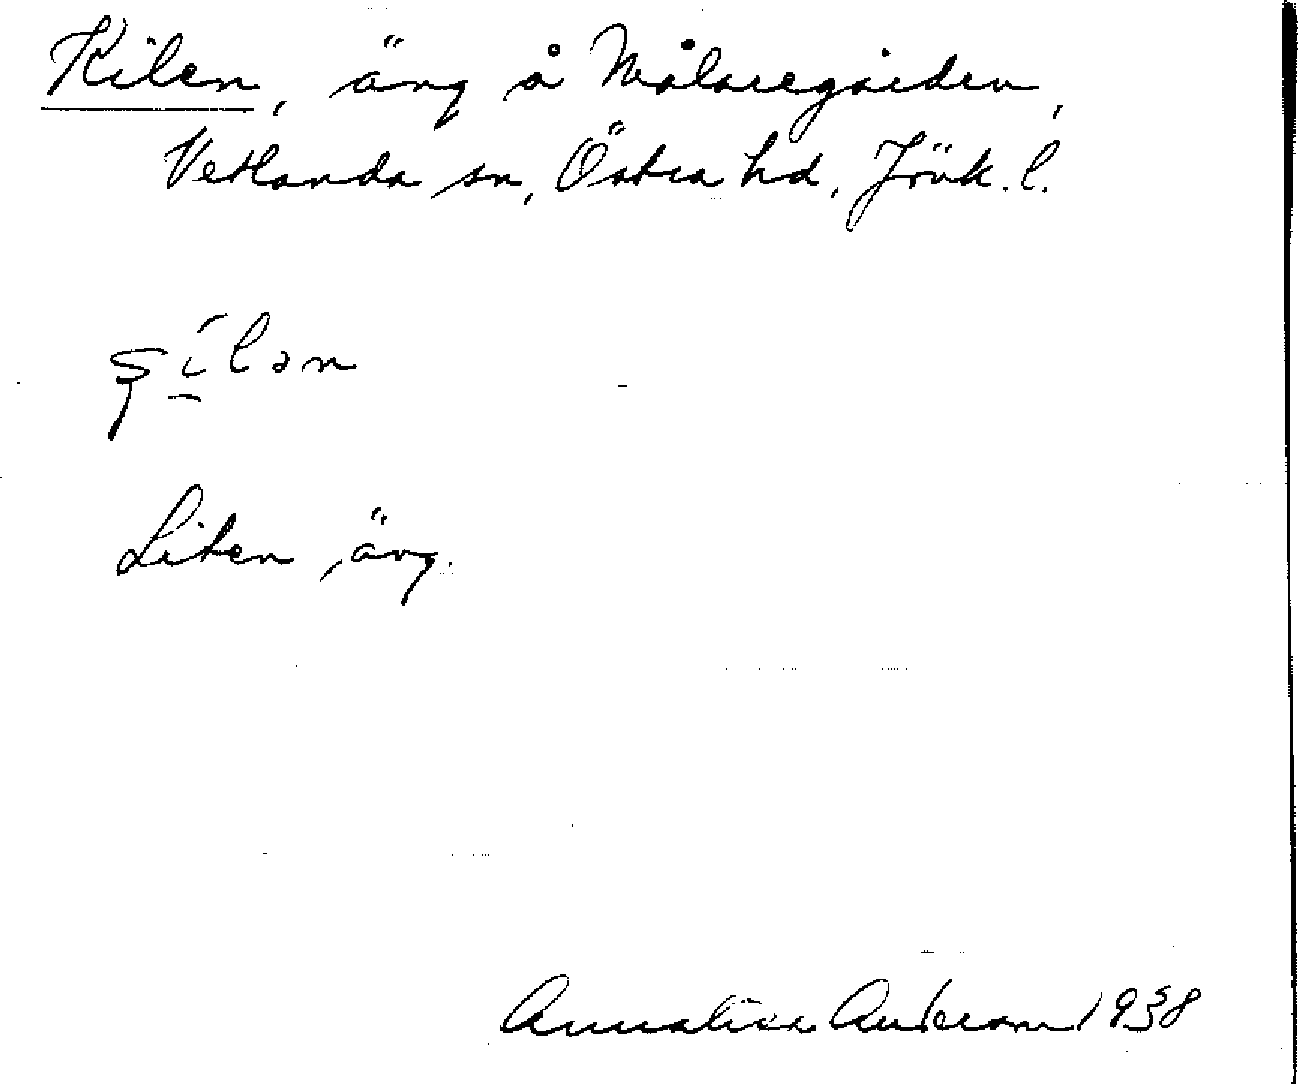 Kilen, äng å Målaregården,
Vetlanda sn, Östra hd, Jönk. l.
Liten äng.
Annalisa Anderson 1938